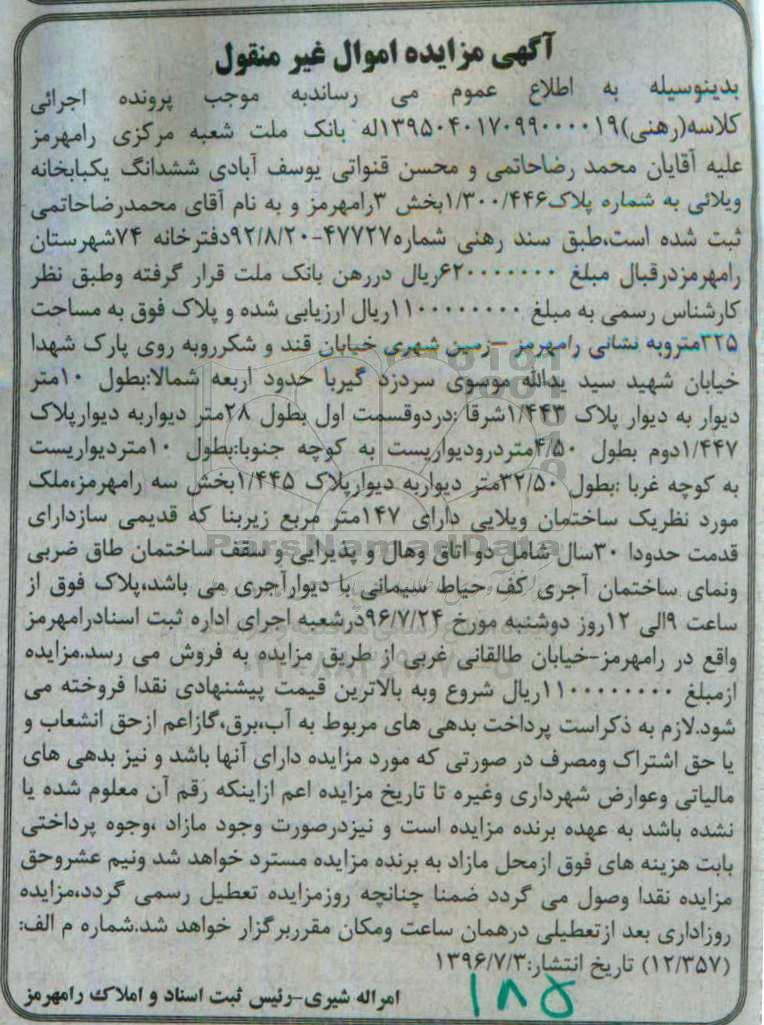 آگهی مزایده اموال غیر منقول
بدینوسیله به اطلاع عموم می رساندبه موجب پرونده اجرائی
کلاسه(رهنی)۱۳۹۵۰۴۰۱۷۰۹۹۰۰۰۰۱۹له بانک ملت شعبه مرکزی رامهرمز
علیه آقایان محمد رضاحاتمی و محسن قنواتی یوسف آبادی ششدانگ یکبابخانه
ویلائی به شماره پلاک۱/۳۰۰/۴۴۶بخش ۳رامهرمز و به نام آقای محمدرضاحاتمی
ثبت شده است،طبق سند رهنی شماره۴۷۷۲۷-۹۲/۸/۲۰دفترخانه ۷۴شهرستان
رامهرمزدرقبال مبلغ ۶۲۰۰۰۰۰۰۰ریال دررهن بانک ملت قرار گرفته وطبق نظر
کارشناس رسمی به مبلغ ۱۱۰۰۰۰۰۰۰۰ریال ارزیابی شده و پلاک فوق به مساحت
۳۲۵متروبه نشانی رامهرمز –زمین شهری خیابان قند و شکرروبه روی پارک شهدا
خیابان شهید سید یدالله موسوی سردزد گیربا حدود اربعه شمالا:بطول ۱۰متر
دیوار به دیوار پلاک ۱/۴۴۳شرقا :دردوقسمت اول بطول ۲۸متر دیواربه دیوارپلاک
۱/۴۴۷دوم بطول ۴/۵۰متردرودیواریست به کوچه جنوبا:بطول ۱۰متردیواریست
به کوچه غربا :بطول ۳۲/۵۰متر دیواربه دیوارپلاک ۱/۴۴۵بخش سه رامهرمز،ملک
مورد نظریک ساختمان ویلایی دارای ۱۴۷متر مربع زیربنا که قدیمی سازدارای
قدمت حدودا ۳۰سال شامل دو اتاق وهال و پذیرایی و سقف ساختمان طاق ضربی
ونمای ساختمان آجری کف حیاط سیمانی با دیوارآجری می باشد،پلاک فوق از
ساعت ۹الی ۱۲روز دوشنبه مورخ ۹۶/۷/۲۴درشعبه اجرای اداره ثبت اسنادرامهرمز
واقع در رامهرمز-خیابان طالقانی غربی از طریق مزایده به فروش می رسد.مزایده
ازمبلغ ۱۱۰۰۰۰۰۰۰۰ریال شروع وبه بالاترین قیمت پیشنهادی نقدا فروخته می
شود.لازم به ذکراست پرداخت بدهی های مربوط به آب،برق،گازاعم ازحق انشعاب و
یا حق اشتراک ومصرف در صورتی که مورد مزایده دارای آنها باشد و نیز بدهی های
مالیاتی وعوارض شهرداری وغیره تا تاریخ مزایده اعم ازاینکه رقم آن معلوم شده یا
نشده باشد به عهده برنده مزایده است و نیزدرصورت وجود مازاد ،وجوه پرداختی
بابت هزینه های فوق ازمحل مازاد به برنده مزایده مسترد خواهد شد ونیم عشروحق
مزایده نقدا وصول می گردد ضمنا چنانچه روزمزایده تعطیل رسمی گردد،مزایده
روزاداری بعد ازتعطیلی درهمان ساعت ومکان مقرربرگزار خواهد شد.شماره م الف:
(۱۲/۳۵۷) تاریخ انتشار:۱۳۹۶/۷/۳
امراله شیری-رئیس ثبت اسناد و املاک رامهرمز
۱۸۵
ParsNamadData